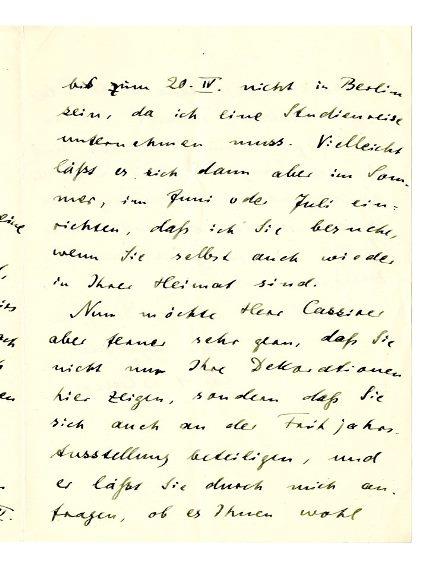 bis zum 20. IV. nicht in Berlin
sein, da ich eine Studienreise
unternehmen muss. Vielleicht
läßt es sich dann aber im Som-
mer, im Juni oder Juli ein-
richten, daß ich Sie besuche,
wenn Sie selbst auch wieder
in Ihrer Heimat sind.
Nun möchte Herr Cassirer
aber ferner sehr gern, daß Sie
nicht nur Ihre Dekorationen
hier zeigen, sondern daß Sie
sich auch an der Frühjahrs-
Ausstellung beteiligen, und
er läßt Sie durch mich an-
fragen, ob es Ihnen wohl